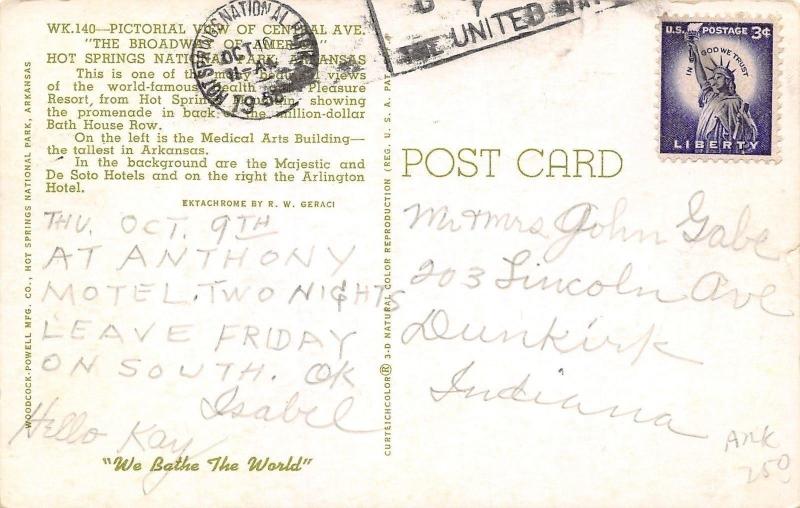 WK.140—PICTORIAL VIEW OF CENTRAL AVE.
"THE BROADWAY OF AMERICA"
HOT SPRINGS NATIONAL PARK, ARKANSAS
This is one of the many beautiful views
of the world-famous Health and Pleasure
Resort, from Hot Springs Mountain, showing
the promenade in back of the million-dollar
Bath House Row.
On the left is the Medical Arts Building—
the tallest in Arkansas.
In the background are the Majestic and
De Soto Hotels and on the right the Arlington
Hotel.
EKTACHROME BY R. W. GERACI
THU. OCT. 9TH
AT ANTHONY
MOTEL. TWO NIGHTS
LEAVE FRIDAY
ON SOUTH. OK
Isabel
Hello Kay
"We Bathe The World"
WOODCOCK-POWELL MFG. CO., HOT SPRINGS NATIONAL PARK, ARKANSAS
CURTEICHCOLOR® 3-D NATURAL COLOR REPRODUCTION (REG. U. S. A. PAT
HOT SPRINGS NATIONAL
OCT 10
1958
THE UNITED
U.S. POSTAGE 3¢
IN GOD WE TRUST
LIBERTY
POST CARD
Mr & Mrs John Gabe
203 Lincoln Ave
Dunkirk
Indiana
ARK
250